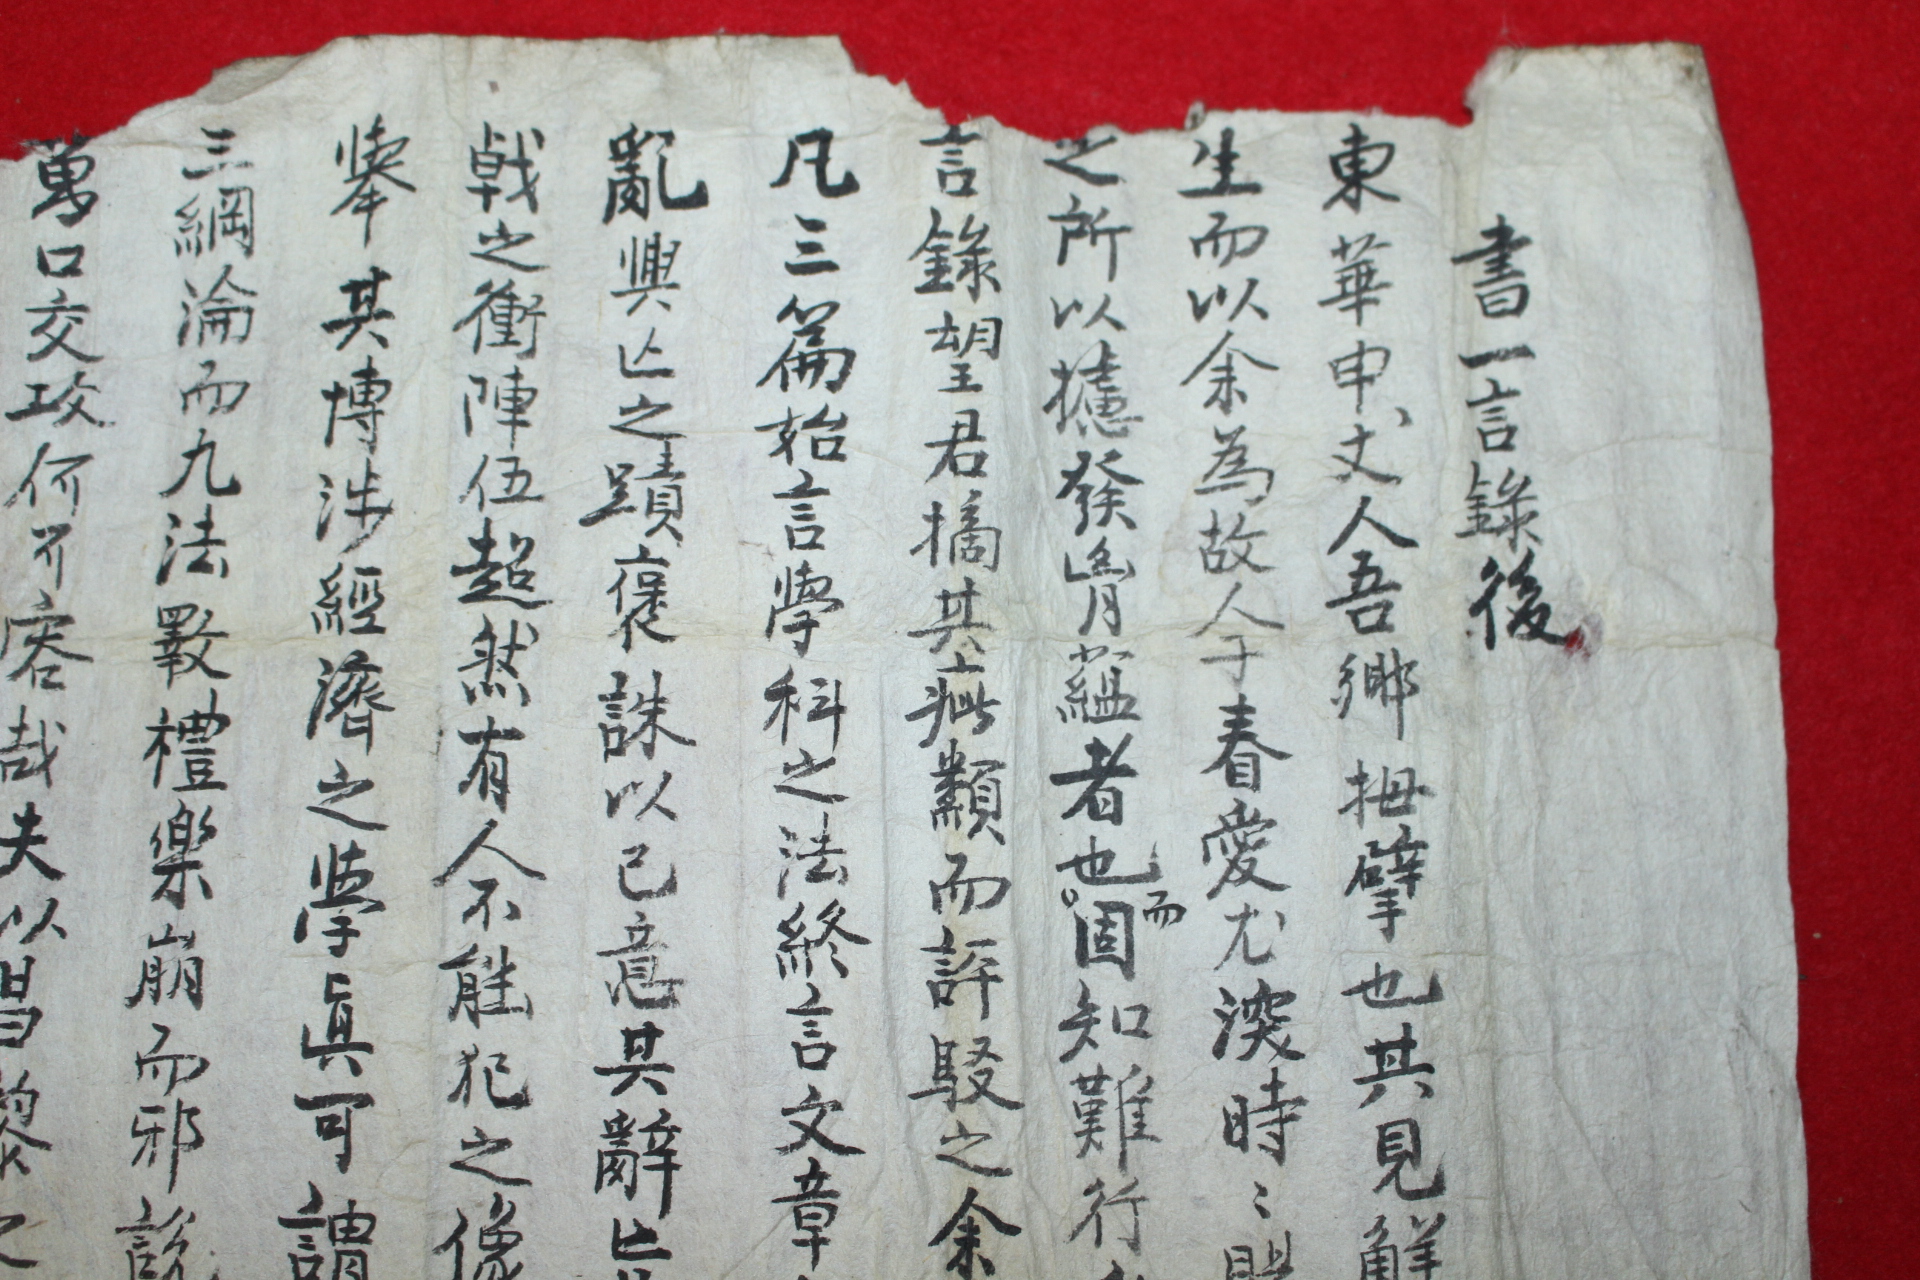 書一言錄後
東華申丈人吾鄉拇擘也其見解
生而以余為故人子眷愛尤深時〻
之所以攄發胷蘊者也而固知難行
言錄望君摘其疵纇而評駁之余
凡三篇始言學科之法終言文章
亂興亾之蹟褒誅以己意其辭
戟之衝陣伍超然有人不能犯之像
擧其博涉經濟之學眞可謂
三綱淪而九法斁禮樂崩而邪說
萬口交攻何不容哉夫以昌黎之